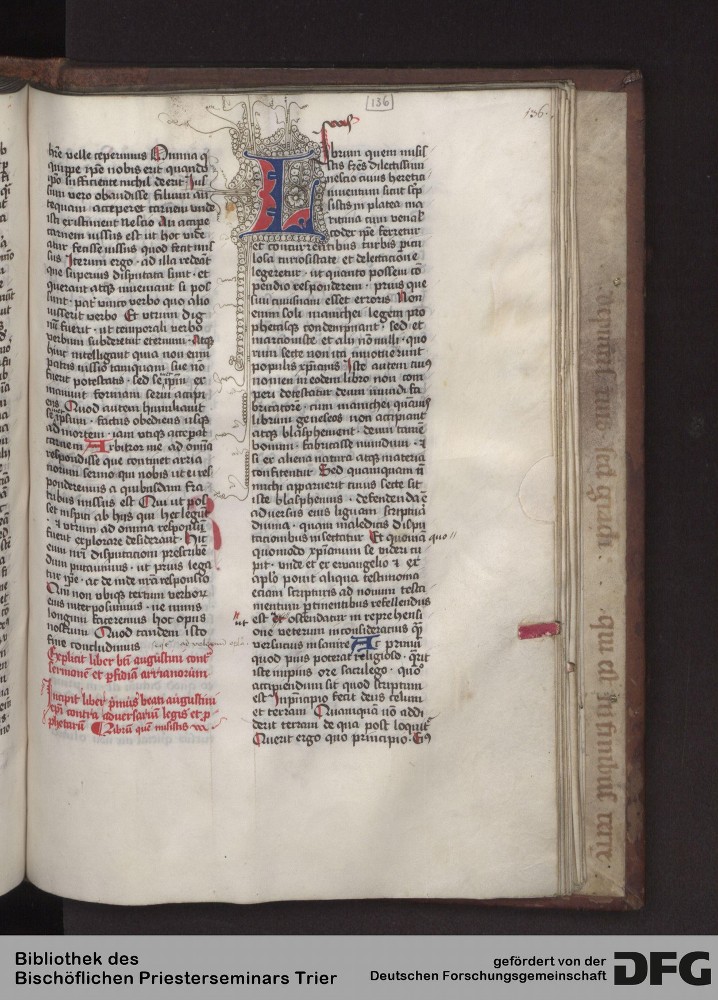 [136]
136.
hãe velle ceperimus Omnia q
quippe ipse nobis erit quando
ipo sufficiente nichil deerit Jus
sum vero obaudisse filium an
tequam acciperet carnem unde
isti existiment nescio An accipe
carnem iussus est ut hoc vide
atur fecisse iussus quod fecit mis
sus Iterum ergo ad illa redeat
que superius disputata sunt et
querant atqz inveniant si pos
sunt pat unico verbo quo alio
iusserit verbo Et utrum dig
nũ fuerit ut temporali verbo
verbum subderetur eternum Atqz
hinc intelligant quia non eum
patris iussio tamquam sue nõ
fuerit potestatis sed se ex
manivit formam servi accipi
ens Quod autem humiliavit
factus obediens usqz
ad mortem iam utiqz acceperat
carnem Arbitror me ad omnia
respondisse que continet arria
norum sermo qui nobis ut ei res
ponderemus a quibusdam fra
tribus missus est Qui ut pos
set inspici ab hijs qui hec legunt
et utrum ad omnia responsum
fuerit explorare desiderant hic
eum nrẽ disputationi prescribẽ
dum putavimus ut prius lega
tur ipe ac de inde nrã responsio
Qui non ubiqz textum verborz
eius interposuimus ne nimis
longum faceremus hoc opus
nostrum Quod tandem isto
fine concludimus
Explicit liber bti augustini cont
sermonem et pfidiã arrianorum
Incipit liber pmus beati augustini
epi contra adversariũ legis et p
phetarũ Librũ quẽ misistis
Librum quem misis
stis frẽs dilectissimi
nescio cuius heretici
inventum sicut scp
sistis in platea ma
ritima cum venal
codex ipe ferretur
et concurrentibus turbis picu
losa curiositate et delectatione
legeretur ut quanto possem cõ
pendio responderem prius que
sivi cuiusnam esset erroris Non
enim soli manichei legem pro
phetasqz condempnant sed et
marcioniste et alij nõ nulli quo
rum secte non ita innotuerunt
populis xpianis Iste autem cuiꝰ
nomen in eodem libro non com
peri detestatur deum mundi fa
bricatorẽ cum manichei quãvis
librum geneseos non accipiant
atqz blasphement deum tamẽ
bonum fabricasse mundum et
si ex aliena natura atqz materia
confitentur Sed quamquam nõ
michi apparuerit cuius secte sit
iste blasphemus defendenda ẽ
adversus eius linguam scriptura
divina quam maledicis dispu
tacionibus insectatur Et quoniã quo
quomodo xpianum se videri cu
pit unde et ex ewangelio et ex
aplo ponit aliqua testimonia
eciam scripturis ad novum testa
mentum ptinentibus refellendus
ut
est et ostendatur in reprehensi
one veterum inconsideracius qz
versucius insanire Ac primum
quod pius poterat religioso querit
iste impius ore sacrilego quo
accipiendum sit quod scriptum
est In principio fecit deus celum
et terram Quamquã nõ addi
derit terram de qua post loquit
Querit ergo quo principio
Bibliothek des
Bischöflichen Priesterseminars Trier
gefördert von der
Deutschen Forschungsgemeinschaft
DFG